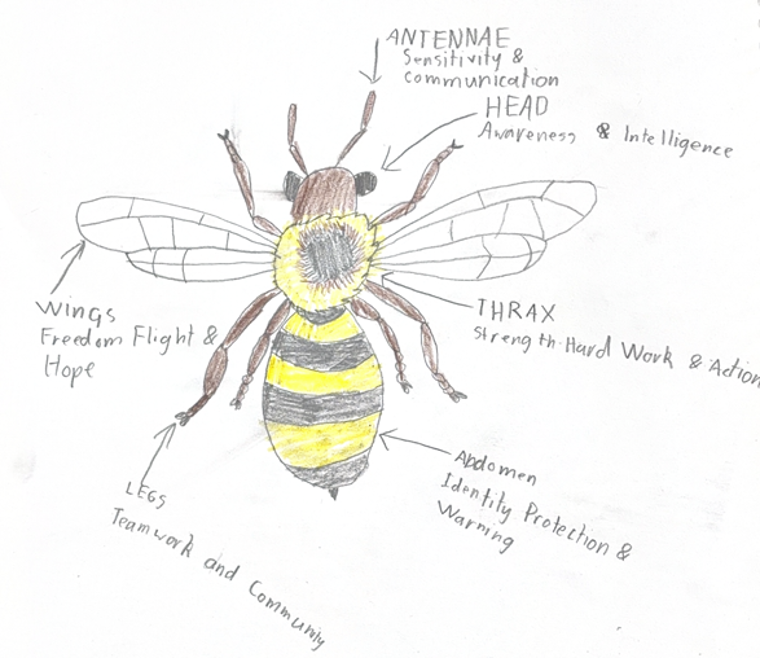 ANTENNAE
Sensitivity &
communication
HEAD
Awareness & Intelligence
Wings
Freedom Flight &
Hope
THRAX
Strength Hard Work & Action
Abdomen
Identity Protection &
Warning
LEGS
Teamwork and Community